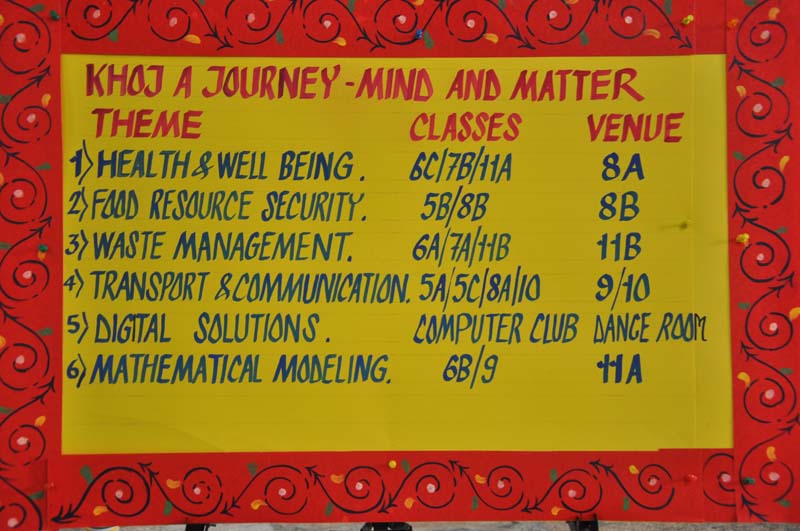 KHOJ A JOURNEY - MIND AND MATTER
THEME CLASSES VENUE
1) HEALTH & WELL BEING. 6C/7B/11A 8A
2) FOOD RESOURCE SECURITY. 5B/8B 8B
3) WASTE MANAGEMENT. 6A/7A/11B 11B
4) TRANSPORT & COMMUNICATION. 5A/5C/8A/10 9/10
5) DIGITAL SOLUTIONS. COMPUTER CLUB DANCE ROOM
6) MATHEMATICAL MODELING. 6B/9 11A